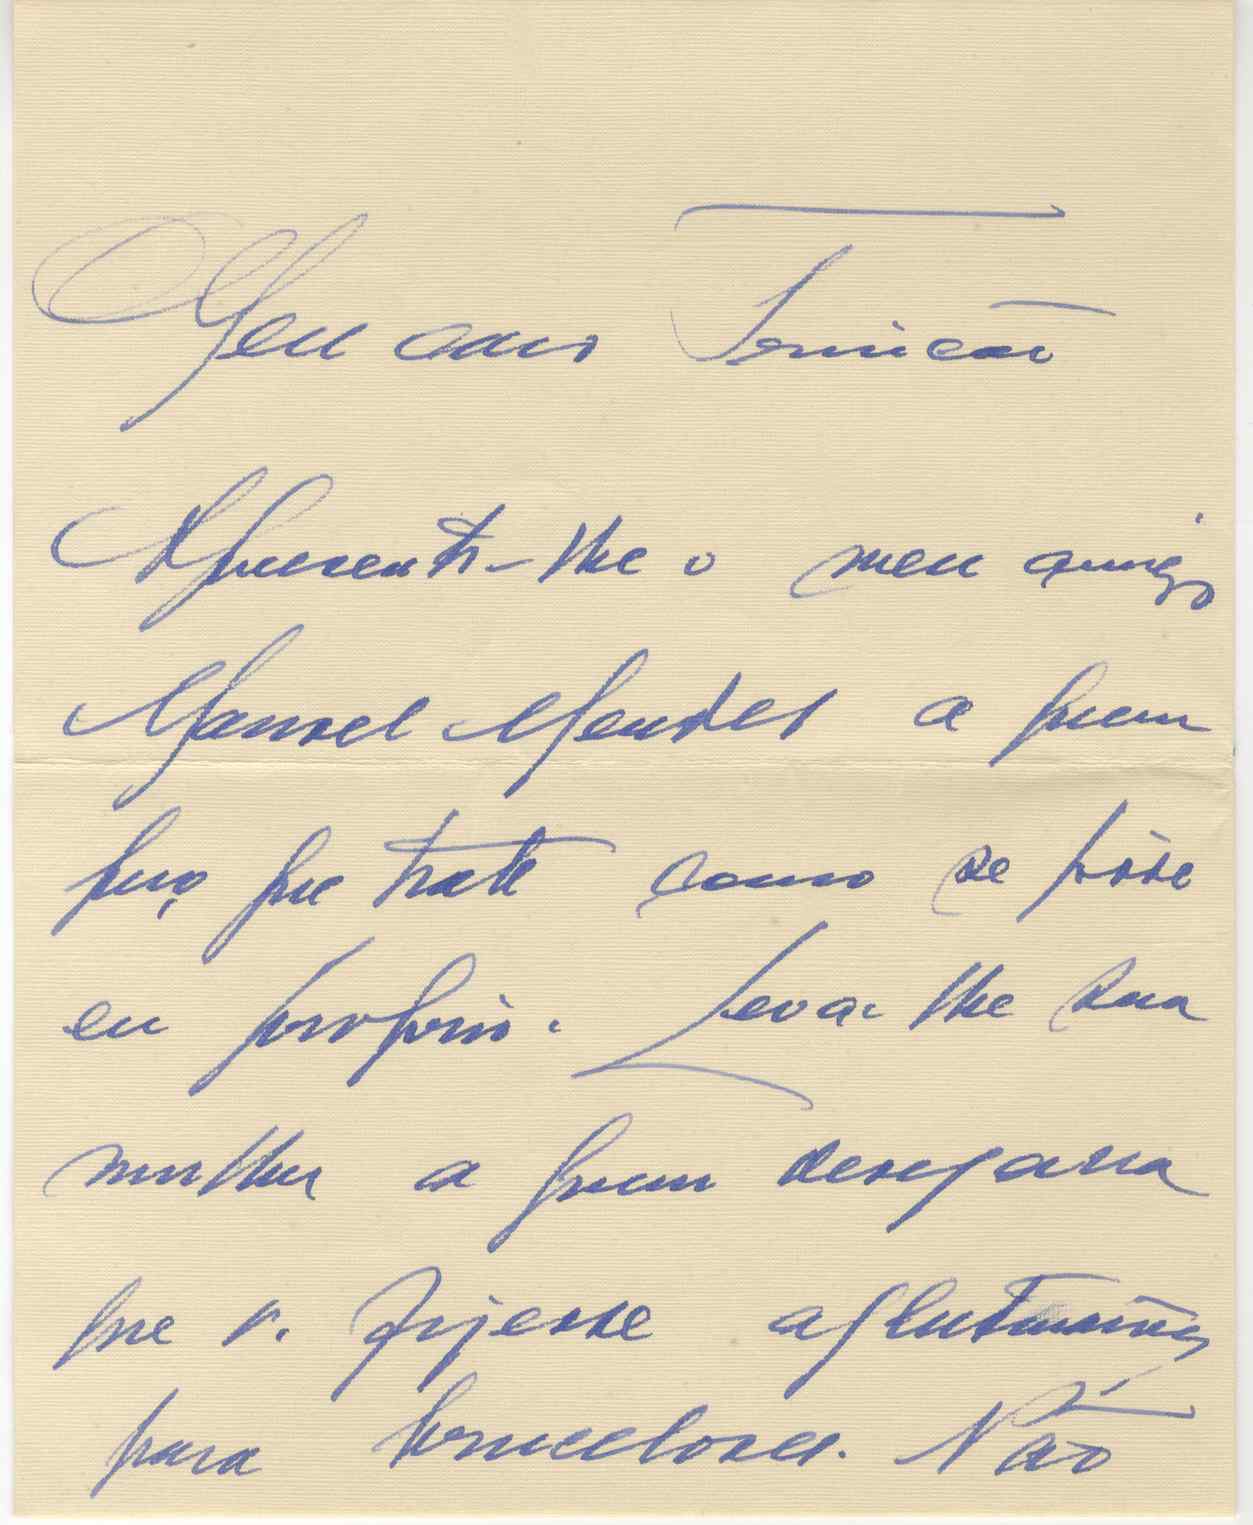 Meu caro Trincão
Apresento-lhe o meu amigo
Manoel Mendes a quem
peço que trate como se fosse
eu proprio. Leva-lhe sua
mulher a quem desejaria
que v. fizesse aglutinações
para bruceloses. Não